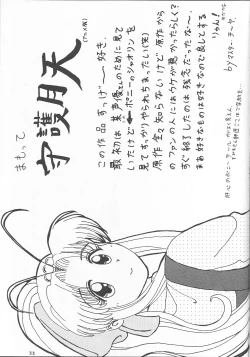 まもって
守護月天
(アニメ版)
この作品すっげー好き。
最初は美声優さんのために見て
いたけど←ポニーのシャオリンを
見てすっかりやられちまったい(笑)
原作全々知らないけど原作から
のファンの人にはウケが悪かったらしく?
すぐ終了したのは残念だったな〜。
まぁ好きなものは好きなので良しとする
りゅん!
byマスターチーヤ
33